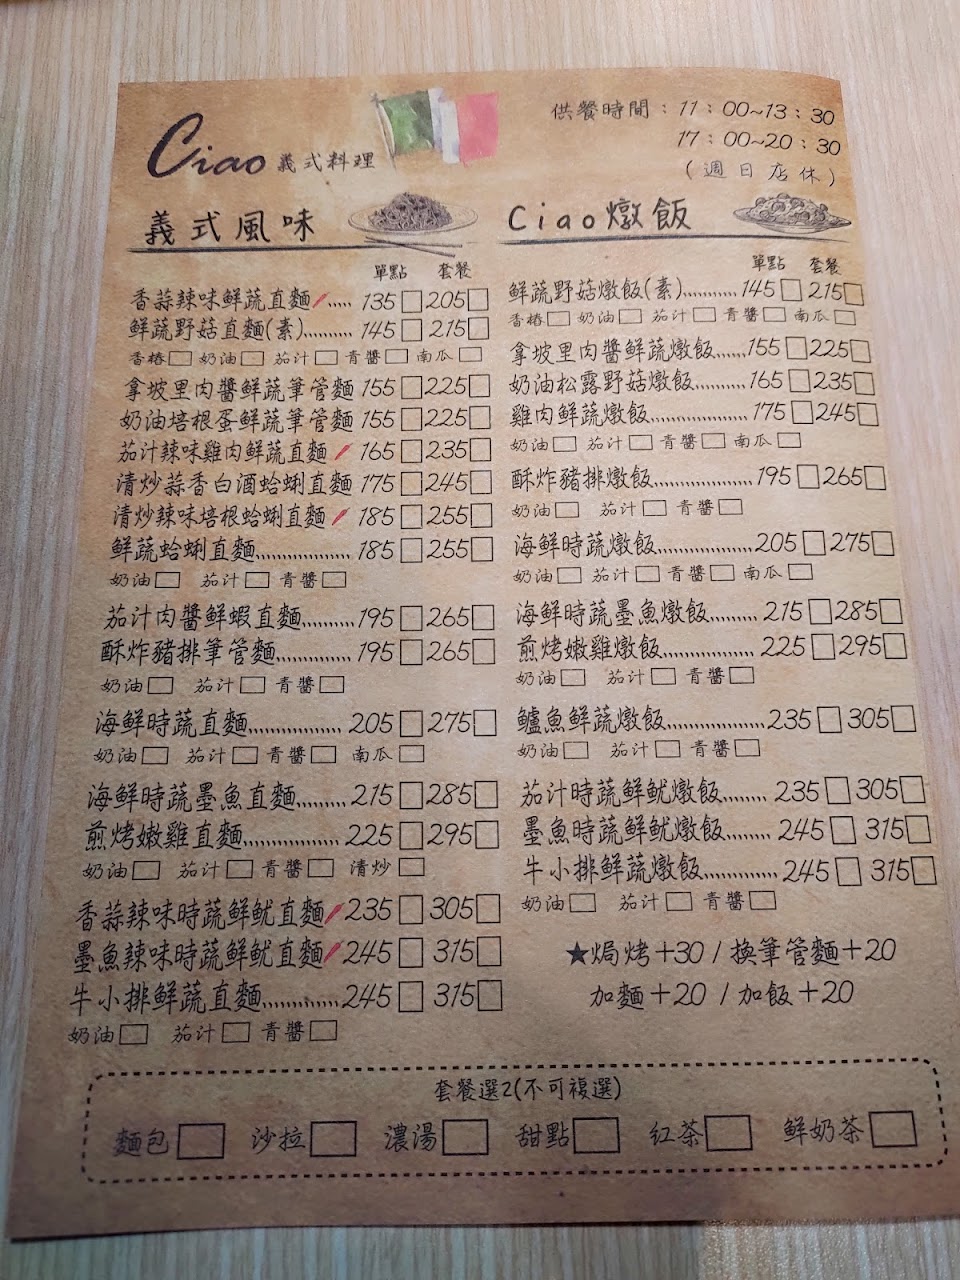 Ciao 義式料理
供餐時間：11：00~13：30
17：00~20：30
(週日店休)
義式風味
單點 套餐
香蒜辣味鮮蔬直麵..... 135 □ 205 □
鮮蔬野菇直麵(素).......... 145 □ 215 □
香椿□ 奶油□ 茄汁□ 青醬□ 南瓜□
拿坡里肉醬鮮蔬筆管麵 155 □ 225 □
奶油培根蛋鮮蔬筆管麵 155 □ 225 □
茄汁辣味雞肉鮮蔬直麵 165 □ 235 □
清炒蒜香白酒蛤蜊直麵 175 □ 245 □
清炒辣味培根蛤蜊直麵 185 □ 255 □
鮮蔬蛤蜊直麵................ 185 □ 255 □
奶油□ 茄汁□ 青醬□
茄汁肉醬鮮蝦直麵.......... 195 □ 265 □
酥炸豬排筆管麵.............. 195 □ 265 □
奶油□ 茄汁□ 青醬□
海鮮時蔬直麵................ 205 □ 275 □
奶油□ 茄汁□ 青醬□ 南瓜□
海鮮時蔬墨魚直麵......... 215 □ 285 □
煎烤嫩雞直麵................ 225 □ 295 □
奶油□ 茄汁□ 青醬□ 清炒□
香蒜辣味時蔬鮮魷直麵 235 □ 305 □
墨魚辣味時蔬鮮魷直麵 245 □ 315 □
牛小排鮮蔬直麵............. 245 □ 315 □
奶油□ 茄汁□ 青醬□
Ciao燉飯
單點 套餐
鮮蔬野菇燉飯(素)........... 145 □ 215 □
香椿□ 奶油□ 茄汁□ 青醬□ 南瓜□
拿坡里肉醬鮮蔬燉飯...... 155 □ 225 □
奶油松露野菇燉飯.......... 165 □ 235 □
雞肉鮮蔬燉飯.................... 175 □ 245 □
奶油□ 茄汁□ 青醬□ 南瓜□
酥炸豬排燉飯.................... 195 □ 265 □
奶油□ 茄汁□ 青醬□
海鮮時蔬燉飯................... 205 □ 275 □
奶油□ 茄汁□ 青醬□ 南瓜□
海鮮時蔬墨魚燉飯.......... 215 □ 285 □
煎烤嫩雞燉飯................... 225 □ 295 □
奶油□ 茄汁□ 青醬□
鱸魚鮮蔬燉飯................... 235 □ 305 □
奶油□ 茄汁□ 青醬□
茄汁時蔬鮮魷燉飯........ 235 □ 305 □
墨魚時蔬鮮魷燉飯........ 245 □ 315 □
牛小排鮮蔬燉飯............. 245 □ 315 □
奶油□ 茄汁□ 青醬□
★焗烤+30 / 換筆管麵+20
加麵+20 / 加飯+20
套餐選2(不可複選)
麵包□ 沙拉□ 濃湯□ 甜點□ 紅茶□ 鮮奶茶□